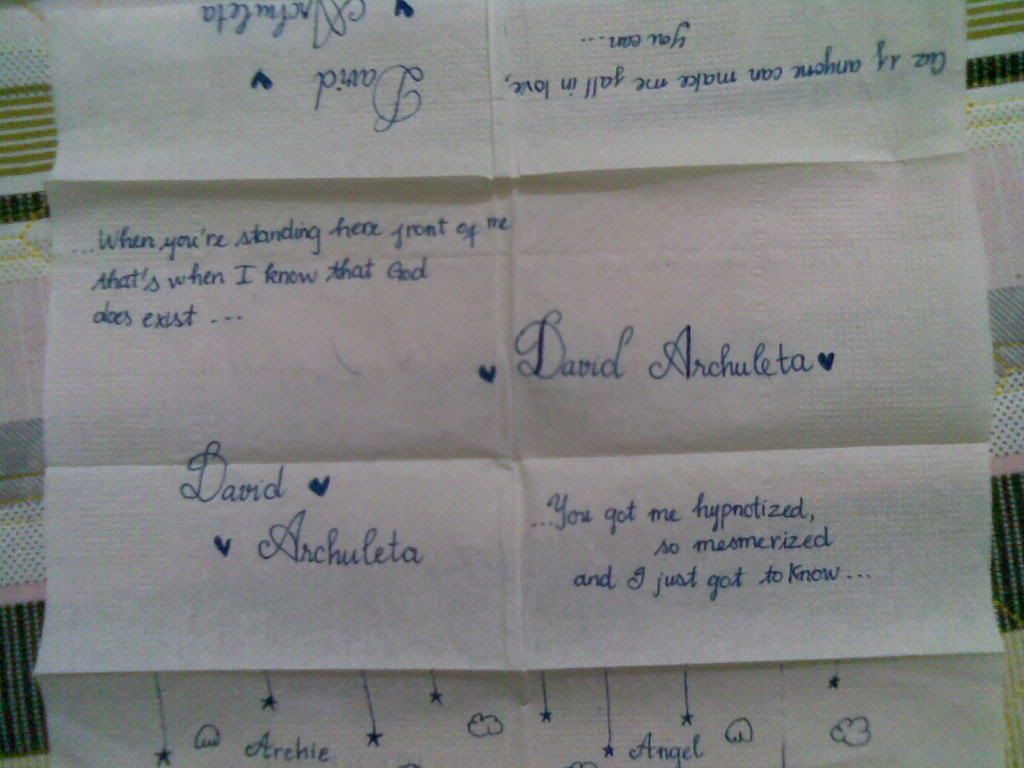 David ♥
♥ Archuleta
Cuz if anyone can make me fall in love,
you can...
...When you're standing here front of me
that's when I know that God
does exist ...
♥ David Archuleta ♥
David ♥
♥ Archuleta
...You got me hypnotized,
so mesmerized
and I just got to know...
Archie
Angel